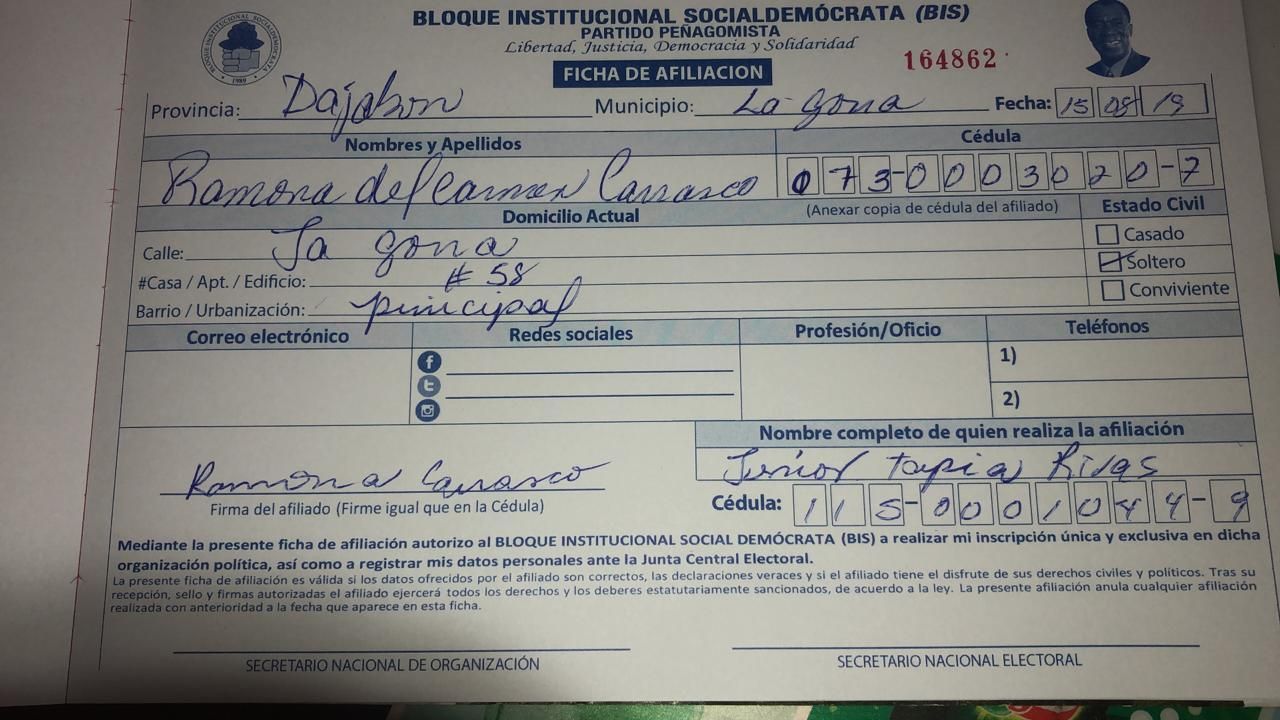 BLOQUE INSTITUCIONAL SOCIALDEMÓCRATA (BIS)
PARTIDO PEÑAGOMISTA
Libertad, Justicia, Democracia y Solidaridad
BLOQUE INSTITUCIONAL SOCIALDEMOCRATA
1989
164862
FICHA DE AFILIACION
Provincia: Dajabon Municipio: La gona Fecha: 15 08 19
Nombres y Apellidos Cédula
Ramona del Carmen Carrasco 073-0003020-7
Domicilio Actual (Anexar copia de cédula del afiliado) Estado Civil
Calle: La gona Casado
#Casa / Apt. / Edificio: # 58 Soltero
Barrio / Urbanización: principal Conviviente
Correo electrónico Redes sociales Profesión/Oficio Teléfonos
1)
2)
Nombre completo de quien realiza la afiliación
Ramona Carrasco Junior tapia Rivas
Firma del afiliado (Firme igual que en la Cédula) Cédula: 115-0001044-9
Mediante la presente ficha de afiliación autorizo al BLOQUE INSTITUCIONAL SOCIAL DEMÓCRATA (BIS) a realizar mi inscripción única y exclusiva en dicha
organización política, así como a registrar mis datos personales ante la Junta Central Electoral.
La presente ficha de afiliación es válida si los datos ofrecidos por el afiliado son correctos, las declaraciones veraces y si el afiliado tiene el disfrute de sus derechos civiles y políticos. Tras su
recepción, sello y firmas autorizadas el afiliado ejercerá todos los derechos y los deberes estatutariamente sancionados, de acuerdo a la ley. La presente afiliación anula cualquier afiliación
realizada con anterioridad a la fecha que aparece en esta ficha.
SECRETARIO NACIONAL DE ORGANIZACIÓN SECRETARIO NACIONAL ELECTORAL